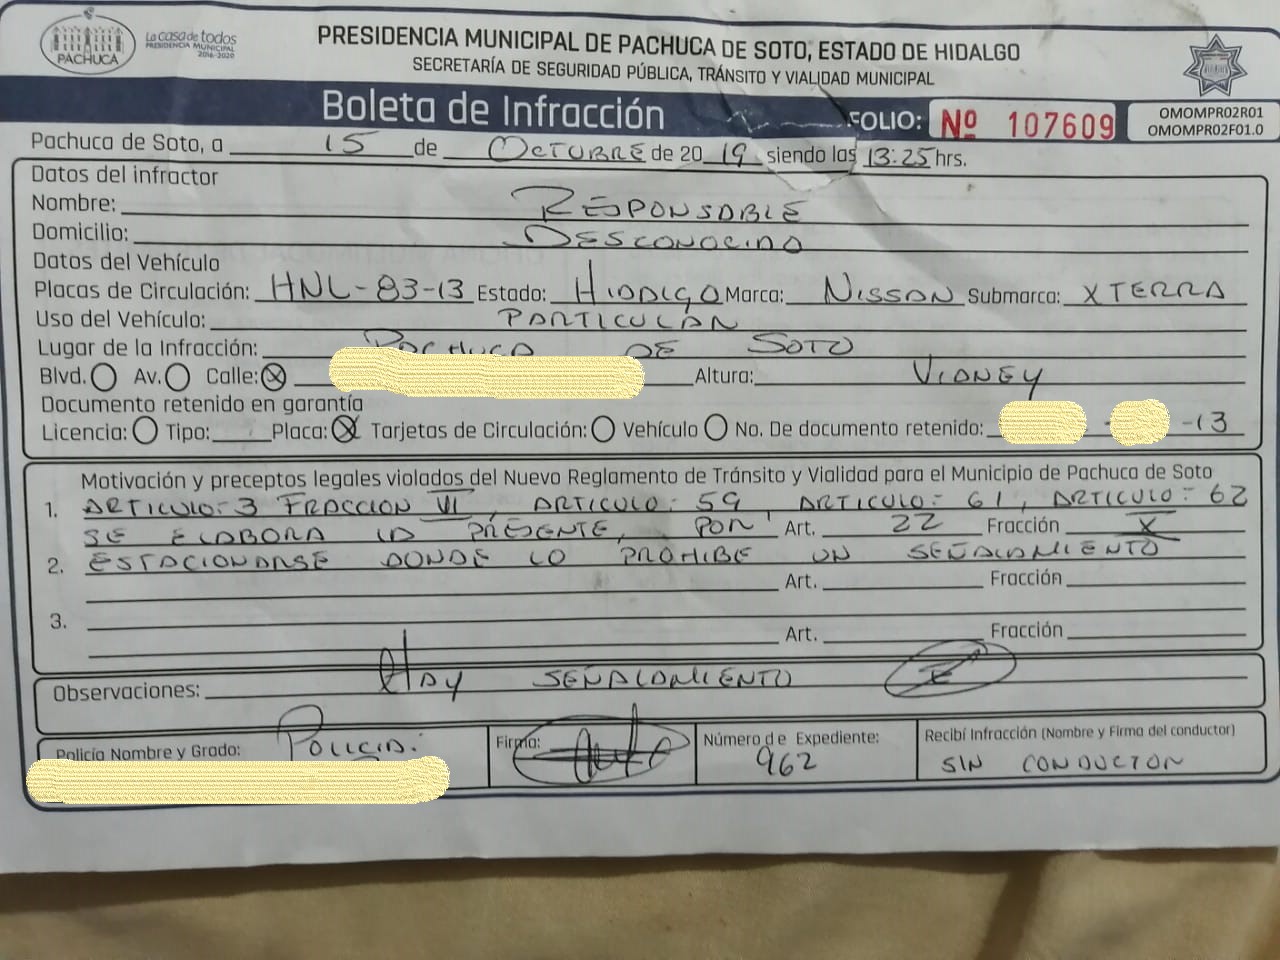 PACHUCA
La casa de todos
PRESIDENCIA MUNICIPAL
2016-2020
PRESIDENCIA MUNICIPAL DE PACHUCA DE SOTO, ESTADO DE HIDALGO
SECRETARÍA DE SEGURIDAD PÚBLICA, TRÁNSITO Y VIALIDAD MUNICIPAL
Boleta de Infracción FOLIO: Nº 107609
OMOMPR02R01
OMOMPR02F01.0
Pachuca de Soto, a 15 de OCTUBRE de 2019 siendo las 13:25 hrs.
Datos del infractor
Nombre: RESPONSABLE
Domicilio: DESCONOCIDO
Datos del Vehículo
Placas de Circulación: HNL-83-13 Estado: HIDALGO Marca: NISSAN Submarca: XTERRA
Uso del Vehículo: PARTICULAR
Lugar de la Infracción: PACHUCA DE SOTO
Blvd. Av. Calle: X Altura: VIDNEY
Documento retenido en garantía
Licencia: Tipo: Placa: X Tarjetas de Circulación: Vehículo No. De documento retenido: - -13
Motivación y preceptos legales violados del Nuevo Reglamento de Tránsito y Vialidad para el Municipio de Pachuca de Soto
1. ARTICULO: 3 FRACCION VI, ARTICULO: 59, ARTICULO: 61, ARTICULO: 62
SE ELABORA LA PRESENTE, POR Art. 22 Fracción X
2. ESTACIONARSE DONDE LO PROHIBE UN SEÑALAMIENTO
Art. Fracción
3.
Art. Fracción
Observaciones: HAY SEÑALAMIENTO
Policía Nombre y Grado: POLICIA: Firma: Número de Expediente: 962 Recibí Infracción (Nombre y Firma del conductor)
SIN CONDUCTOR